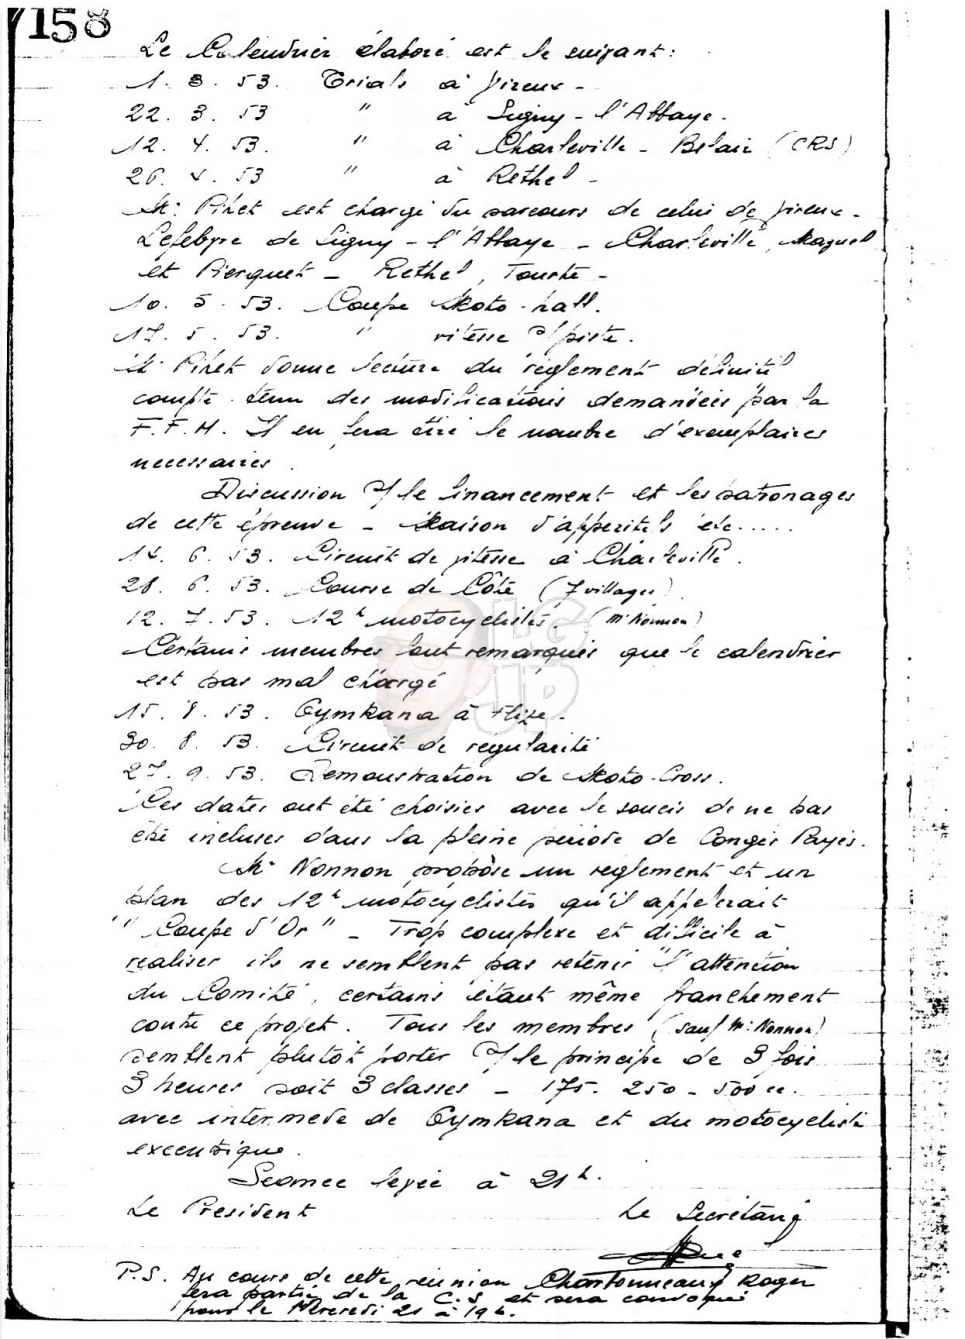 158
Le Calendrier élaboré est le suivant :
1. 3. 53. Trials à Vireux -
22. 3. 53 " à Signy - l'Abbaye.
12. 4. 53. " à Charleville - Belair (CRS)
26. 4. 53 " à Rethel -
M. Pihet est chargé du parcours de celui de Vireux -
Lefebvre de Signy - l'Abbaye - Charleville,
et Pierquet - Rethel, Tourte -
10. 5. 53. Coupe Moto-ball.
17. 5. 53. " vitesse s/piste.
M. Pihet donne lecture du règlement définitif
compte tenu des modifications demandées par la
F.F.M. Il en sera tiré le nombre d'exemplaires
necessaires.
Discussion s/ le financement et les patronages
de cette épreuve - Maison d'apperitifs etc.....
14. 6. 53. Circuit de vitesse à Charleville.
28. 6. 53. Course de Côte (7 villages)
12. 7. 53. 12h motocyclistes. (Mr Nonnon)
Certains membres font remarquer que le calendrier
est pas mal chargé
15. 8. 53. Gymkana à Flize -
30. 8. 53. Circuit de regularité
27. 9. 53. Demonstration de Moto-Cross.
Ces dates ont été choisies avec le soucis de ne pas
été incluses dans la pleine periode de Congés Payés.
Mr Nonnon propose un reglement et un
plan des 12h motocyclistes qu'il appelerait
"Coupe d'Or" - Trop complexe et dificile à
realiser ils ne semblent pas retenir l'attention
du Comité, certains étant même franchement
contre ce projet. Tous les membres (sauf Mr Nonnon)
semblent plutôt porter s/ le principe de 3 fois
3 heures soit 3 classes - 175 - 250 - 500 cc.
avec intermede de Gymkana et du motocycliste
excentrique.
Seance levée à 21h.
Le President Le Secrétaire
P.S. Au cours de cette réunion Charbonneaux Roger
fera partie de la C.S et sera convoqué
pour le Mercredi 21 à 19h.
LG
JP